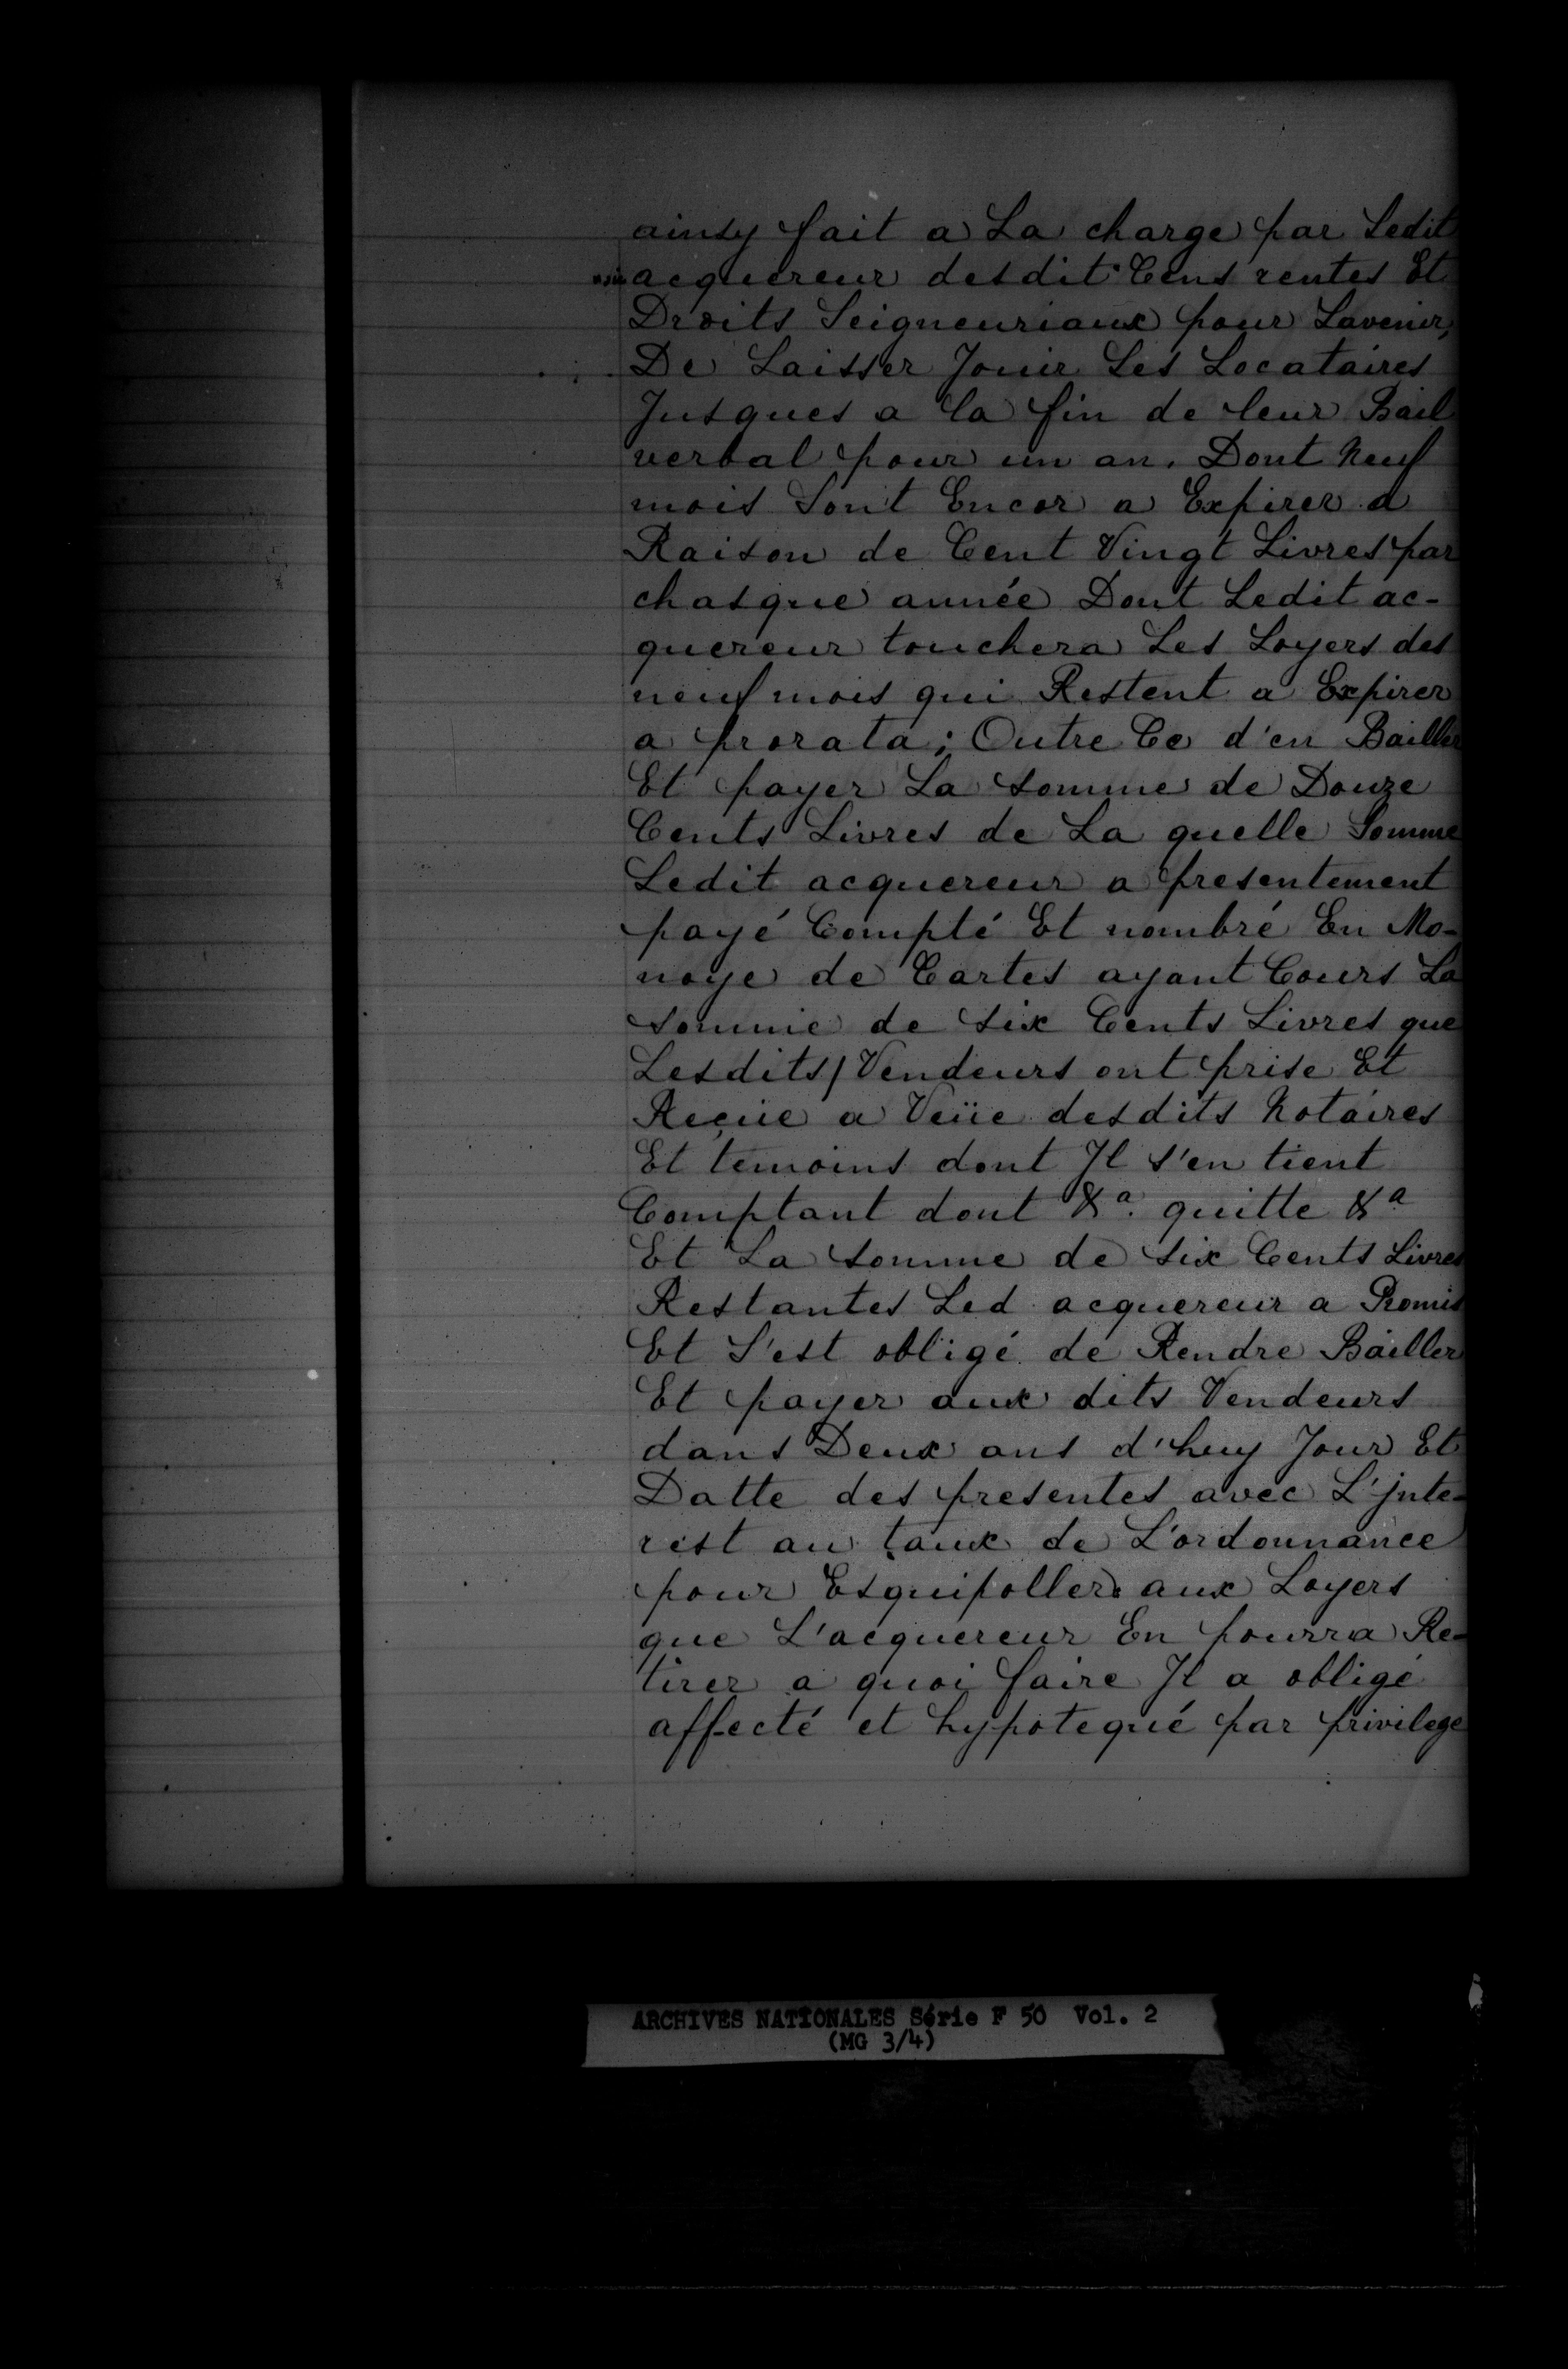 ainsy fait a La charge par Ledit
acquereur desdit Cens rentes Et
Droits Seigneuriaux pour Lavenir,
De Laisser Jouir Les Locataires
Jusques a la fin de leur Bail
verbal pour un an. Dont Neuf
mois Sont Encor a Expirer a
Raison de Cent Vingt Livres par
chasque année Dont Ledit ac-
quereur touchera Les Loyers des
neuf mois qui Restent a Expirer
a prorata; Outre Ce d'en Bailler
Et payer La somme de Douze
Cents Livres de La quelle Somme
Ledit acquereur a presentement
payé Compté Et nombré En Mo-
noye de Cartes ayant Cours La
somme de six Cents Livres que
Lesdits/Vendeurs ont prise Et
Reçue a Veüe desdits Notaires
Et temoins dont Il s'en tient
Comptant dont &a. quitte &a
Et La somme de six Cents Livres
Restantes Led. acquereur a Promis
Et S'est obligé de Rendre Bailler
Et payer aux dits Vendeurs
dans Deux ans d'huy Jour Et
Datte des presentes avec L'jnte-
rest au taux de L'ordonnance
pour Esquipoller aux Loyers
que L'acquereur En pourra Re-
tirer a quoi faire Il a obligé
affecté et hypotequé par privilege
ARCHIVES NATIONALES Série F 50 Vol. 2
(MG 3/4)